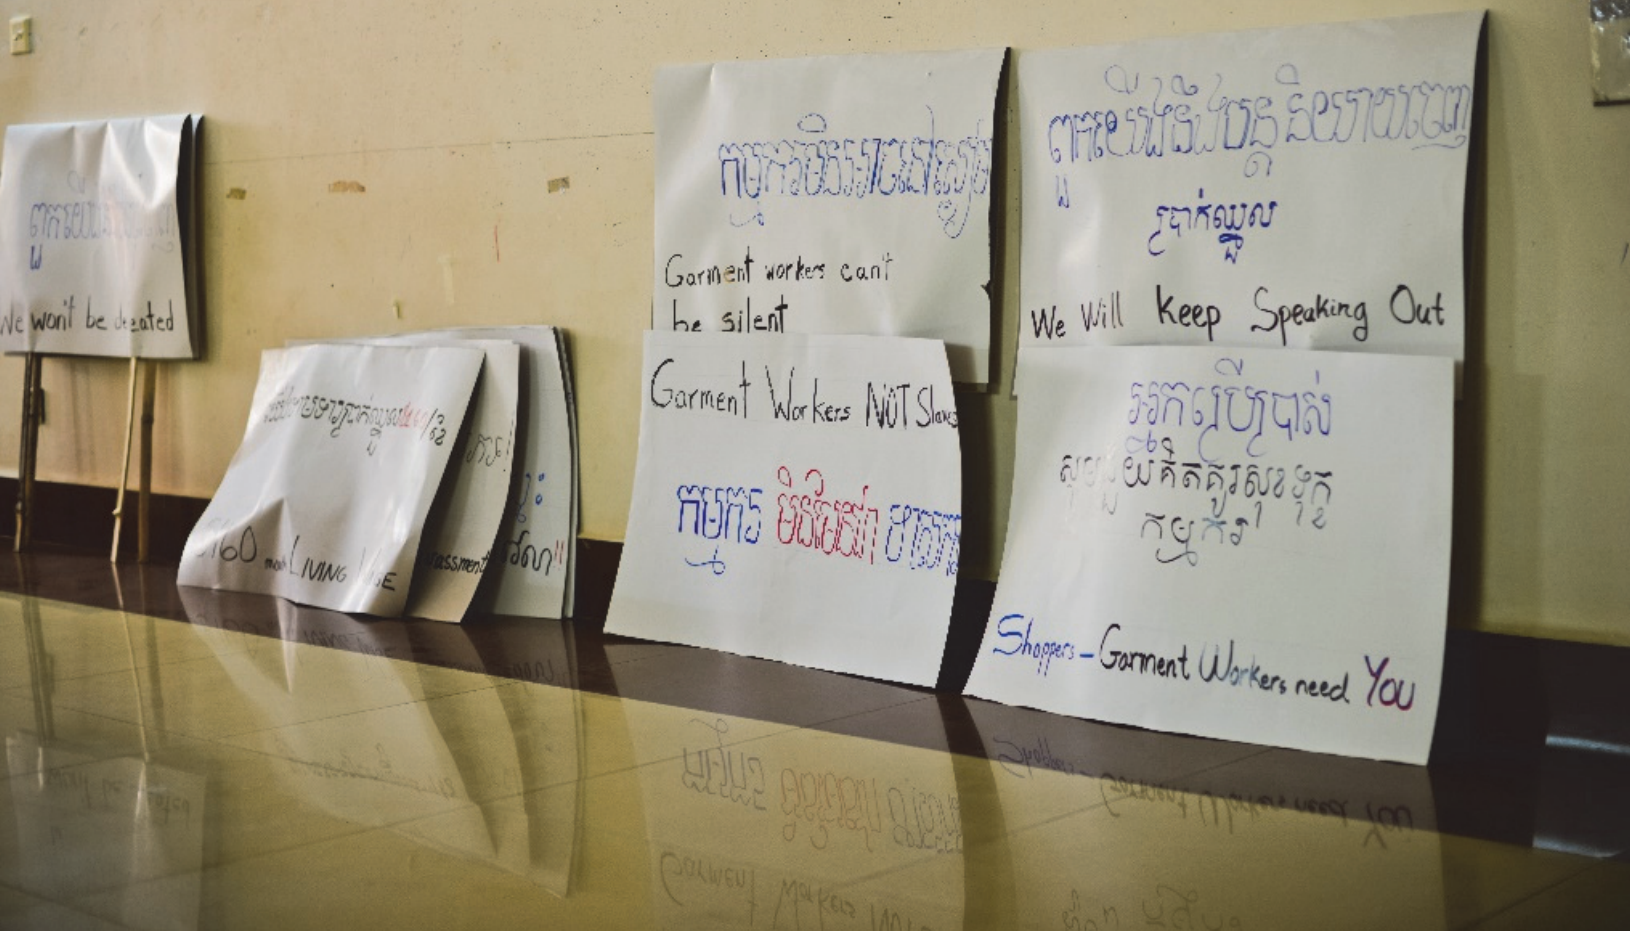 ពួកយើង
We won't be defeated
$160 month LIVING WAGE
កម្មករមិនអាចនៅស្ងៀម
Garment workers can't
be silent
Garment Workers NOT Slaves
កម្មករ មិនមែនជា ទាសករ
ពួកយើងនឹងបន្តនិយាយចេញ
ប្រាក់ឈ្នួល
We Will Keep Speaking Out
អ្នកប្រើប្រាស់
សូមជួយគិតគូរសុខទុក្ខ
កម្មករ
Shoppers - Garment Workers need You